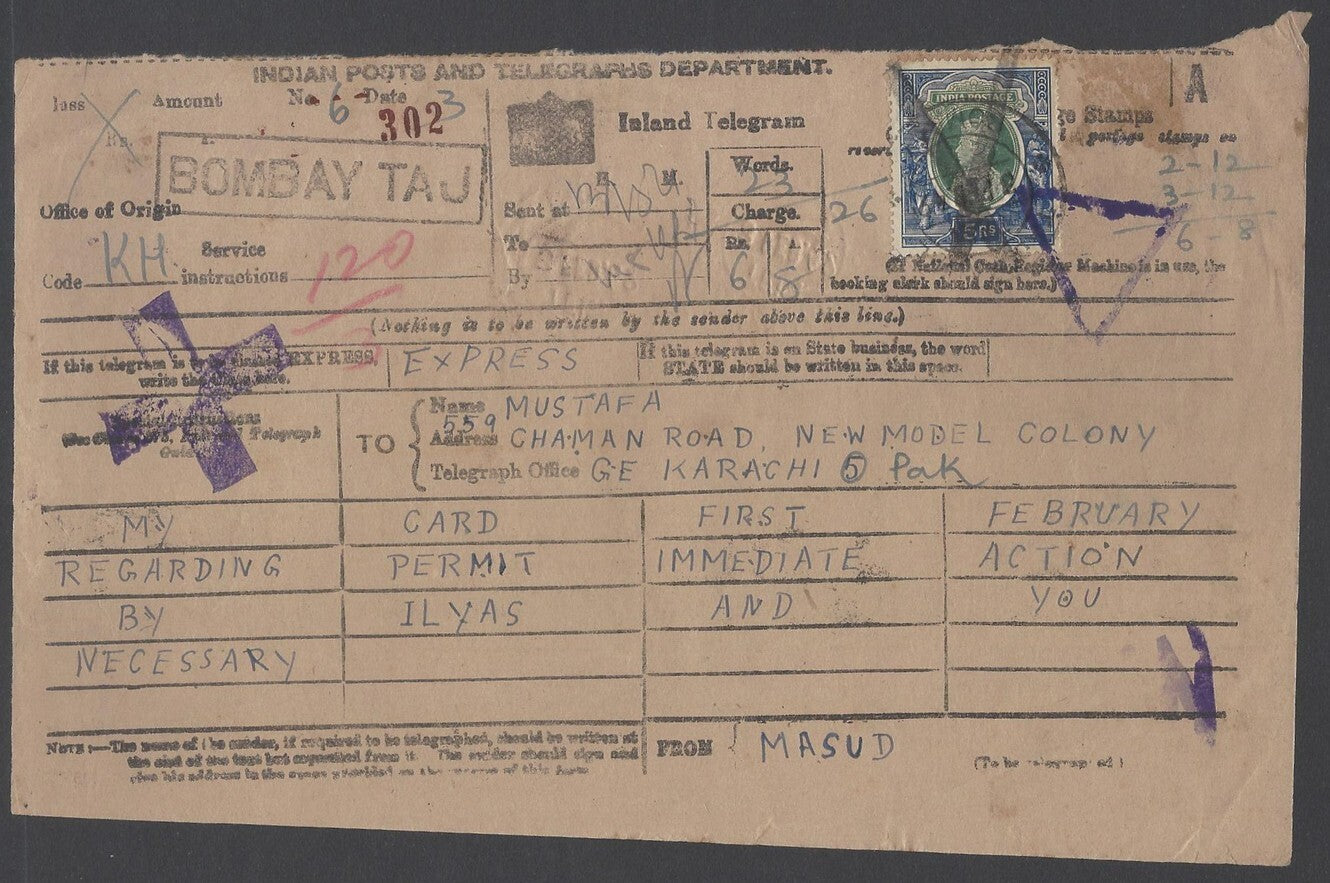 INDIAN POSTS AND TELEGRAPHS DEPARTMENT.
Class Amount No. 6 Date 3
302
A
Rs.
Inland Telegram
Stamps
postage stamps on
BOMBAY TAJ
H. M.
Words.
23
26
INDIA POSTAGE
5 RS
2-12
3-12
6-8
Office of Origin
Sent at
Charge.
To
Rs. A.
6 8
Code KH Service instructions
120
By
(If National Cash Register Machine is in use, the
booking clerk should sign here.)
(Nothing is to be written by the sender above this line.)
If this telegram is EXPRESS,
write the here.
EXPRESS
If this telegram is on State business, the word
STATE should be written in this space.
Telegraph
TO
Name MUSTAFA
Address 559 CHAMAN ROAD, NEW MODEL COLONY
Telegraph Office GE KARACHI 5 Pak
MY CARD FIRST FEBRUARY
REGARDING PERMIT IMMEDIATE ACTION
BY ILYAS AND YOU
NECESSARY
NOTE:—The name of the sender, if required to be telegraphed, should be written at
the end of the text but separated from it. The sender should sign and
give his address in the space provided on the reverse of this form
FROM MASUD
(To be telegraphed)